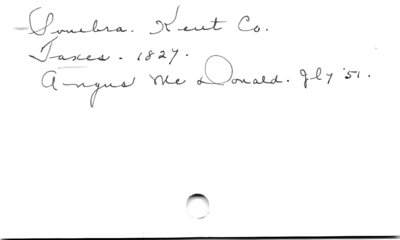 Sombra. Kent Co.
Taxes. 1827.
Angus McDonald. Jly '51.